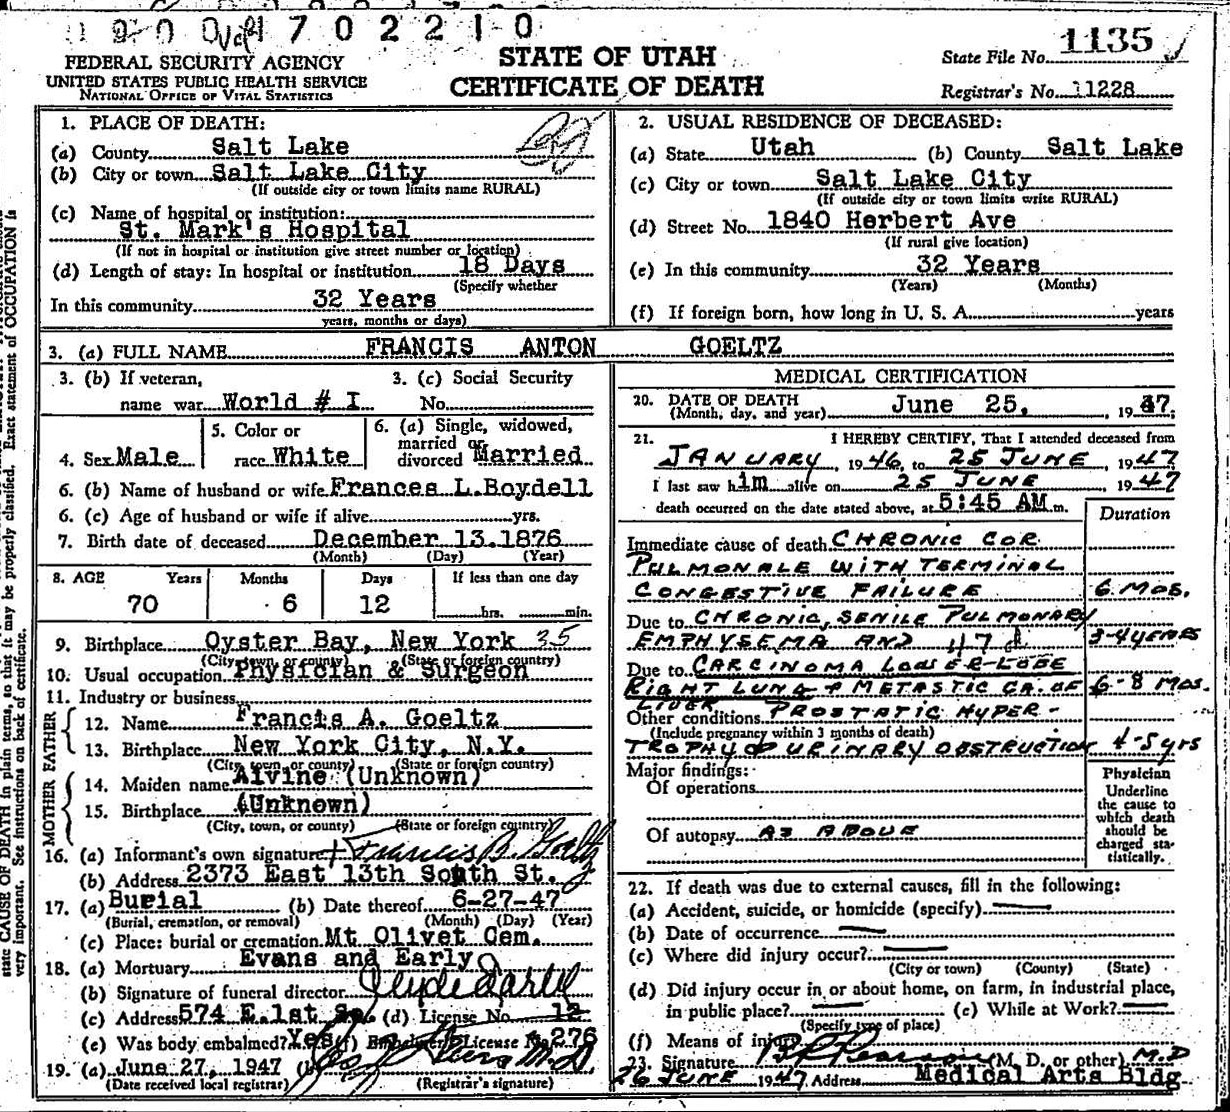 7 0 2 2 1 0
FEDERAL SECURITY AGENCY
UNITED STATES PUBLIC HEALTH SERVICE
NATIONAL OFFICE OF VITAL STATISTICS
STATE OF UTAH
CERTIFICATE OF DEATH
State File No. 1135
Registrar's No. 11228
1. PLACE OF DEATH:
(a) County Salt Lake
(b) City or town Salt Lake City
(If outside city or town limits name RURAL)
(c) Name of hospital or institution:
St. Mark's Hospital
(If not in hospital or institution give street number or location)
(d) Length of stay: In hospital or institution 18 Days
(Specify whether
In this community 32 Years
years, months or days)
2. USUAL RESIDENCE OF DECEASED:
(a) State Utah (b) County Salt Lake
(c) City or town Salt Lake City
(If outside city or town limits write RURAL)
(d) Street No. 1840 Herbert Ave
(If rural give location)
(e) In this community 32 Years
(Years) (Months)
(f) If foreign born, how long in U. S. A. years
3. (a) FULL NAME FRANCIS ANTON GOELTZ
3. (b) If veteran,
name war World # I
3. (c) Social Security
No.
4. Sex Male
5. Color or
race White
6. (a) Single, widowed,
married or
divorced Married
6. (b) Name of husband or wife Frances L. Boydell
6. (c) Age of husband or wife if alive yrs.
7. Birth date of deceased December 13, 1876
(Month) (Day) (Year)
8. AGE Years Months Days If less than one day
70 6 12 hrs. min.
9. Birthplace Oyster Bay, New York 35
(City, town, or county) (State or foreign country)
10. Usual occupation Physician & Surgeon
11. Industry or business
FATHER
12. Name Francis A. Goeltz
13. Birthplace New York City, N.Y.
(City, town, or county) (State or foreign country)
MOTHER
14. Maiden name Alvine (Unknown)
15. Birthplace (Unknown)
(City, town, or county) (State or foreign country)
16. (a) Informant's own signature Francis B. Goeltz
(b) Address 2373 East 13th South St.
17. (a) Burial (b) Date thereof 6-27-47
(Burial, cremation, or removal) (Month) (Day) (Year)
(c) Place: burial or cremation Mt Olivet Cem.
18. (a) Mortuary Evans and Early
(b) Signature of funeral director
(c) Address 574 E. 1st So. (d) License No. 12
(e) Was body embalmed? Yes (f) Embalmer's License No. 276
19. (a) June 27, 1947 (b)
(Date received local registrar) (Registrar's signature)
MEDICAL CERTIFICATION
20. DATE OF DEATH
(Month, day, and year) June 25, , 1947;
21. I HEREBY CERTIFY, That I attended deceased from
JANUARY , 1946, to 25 JUNE , 1947
I last saw him alive on 25 JUNE , 1947
death occurred on the date stated above, at 5:45 AM m.
Duration
Immediate cause of death CHRONIC COR
PULMONALE WITH TERMINAL
CONGESTIVE FAILURE 6 MOS.
Due to CHRONIC, SENILE PULMONARY
EMPHYSEMA AND 47d 3-4 YEARS
Due to CARCINOMA LOWER-LOBE
RIGHT LUNG + METASTIC CA. OF 6-8 MOS.
LIVER
Other conditions PROSTATIC HYPER-
(Include pregnancy within 3 months of death)
TROPHY URINARY OBSTRUCTION 4-5 yrs
Major findings:
Of operations
Of autopsy AS ABOVE
Physician
Underline
the cause to
which death
should be
charged sta-
tistically.
22. If death was due to external causes, fill in the following:
(a) Accident, suicide, or homicide (specify)
(b) Date of occurrence
(c) Where did injury occur?
(City or town) (County) (State)
(d) Did injury occur in or about home, on farm, in industrial place,
in public place? (e) While at Work?
(Specify type of place)
(f) Means of injury
23. Signature (M. D. or other) M.D
26 JUNE 1947 Address Medical Arts Bldg
state CAUSE OF DEATH in plain terms, so that it may be properly classified. Exact statement of OCCUPATION is
very important. See instructions on back of certificate.